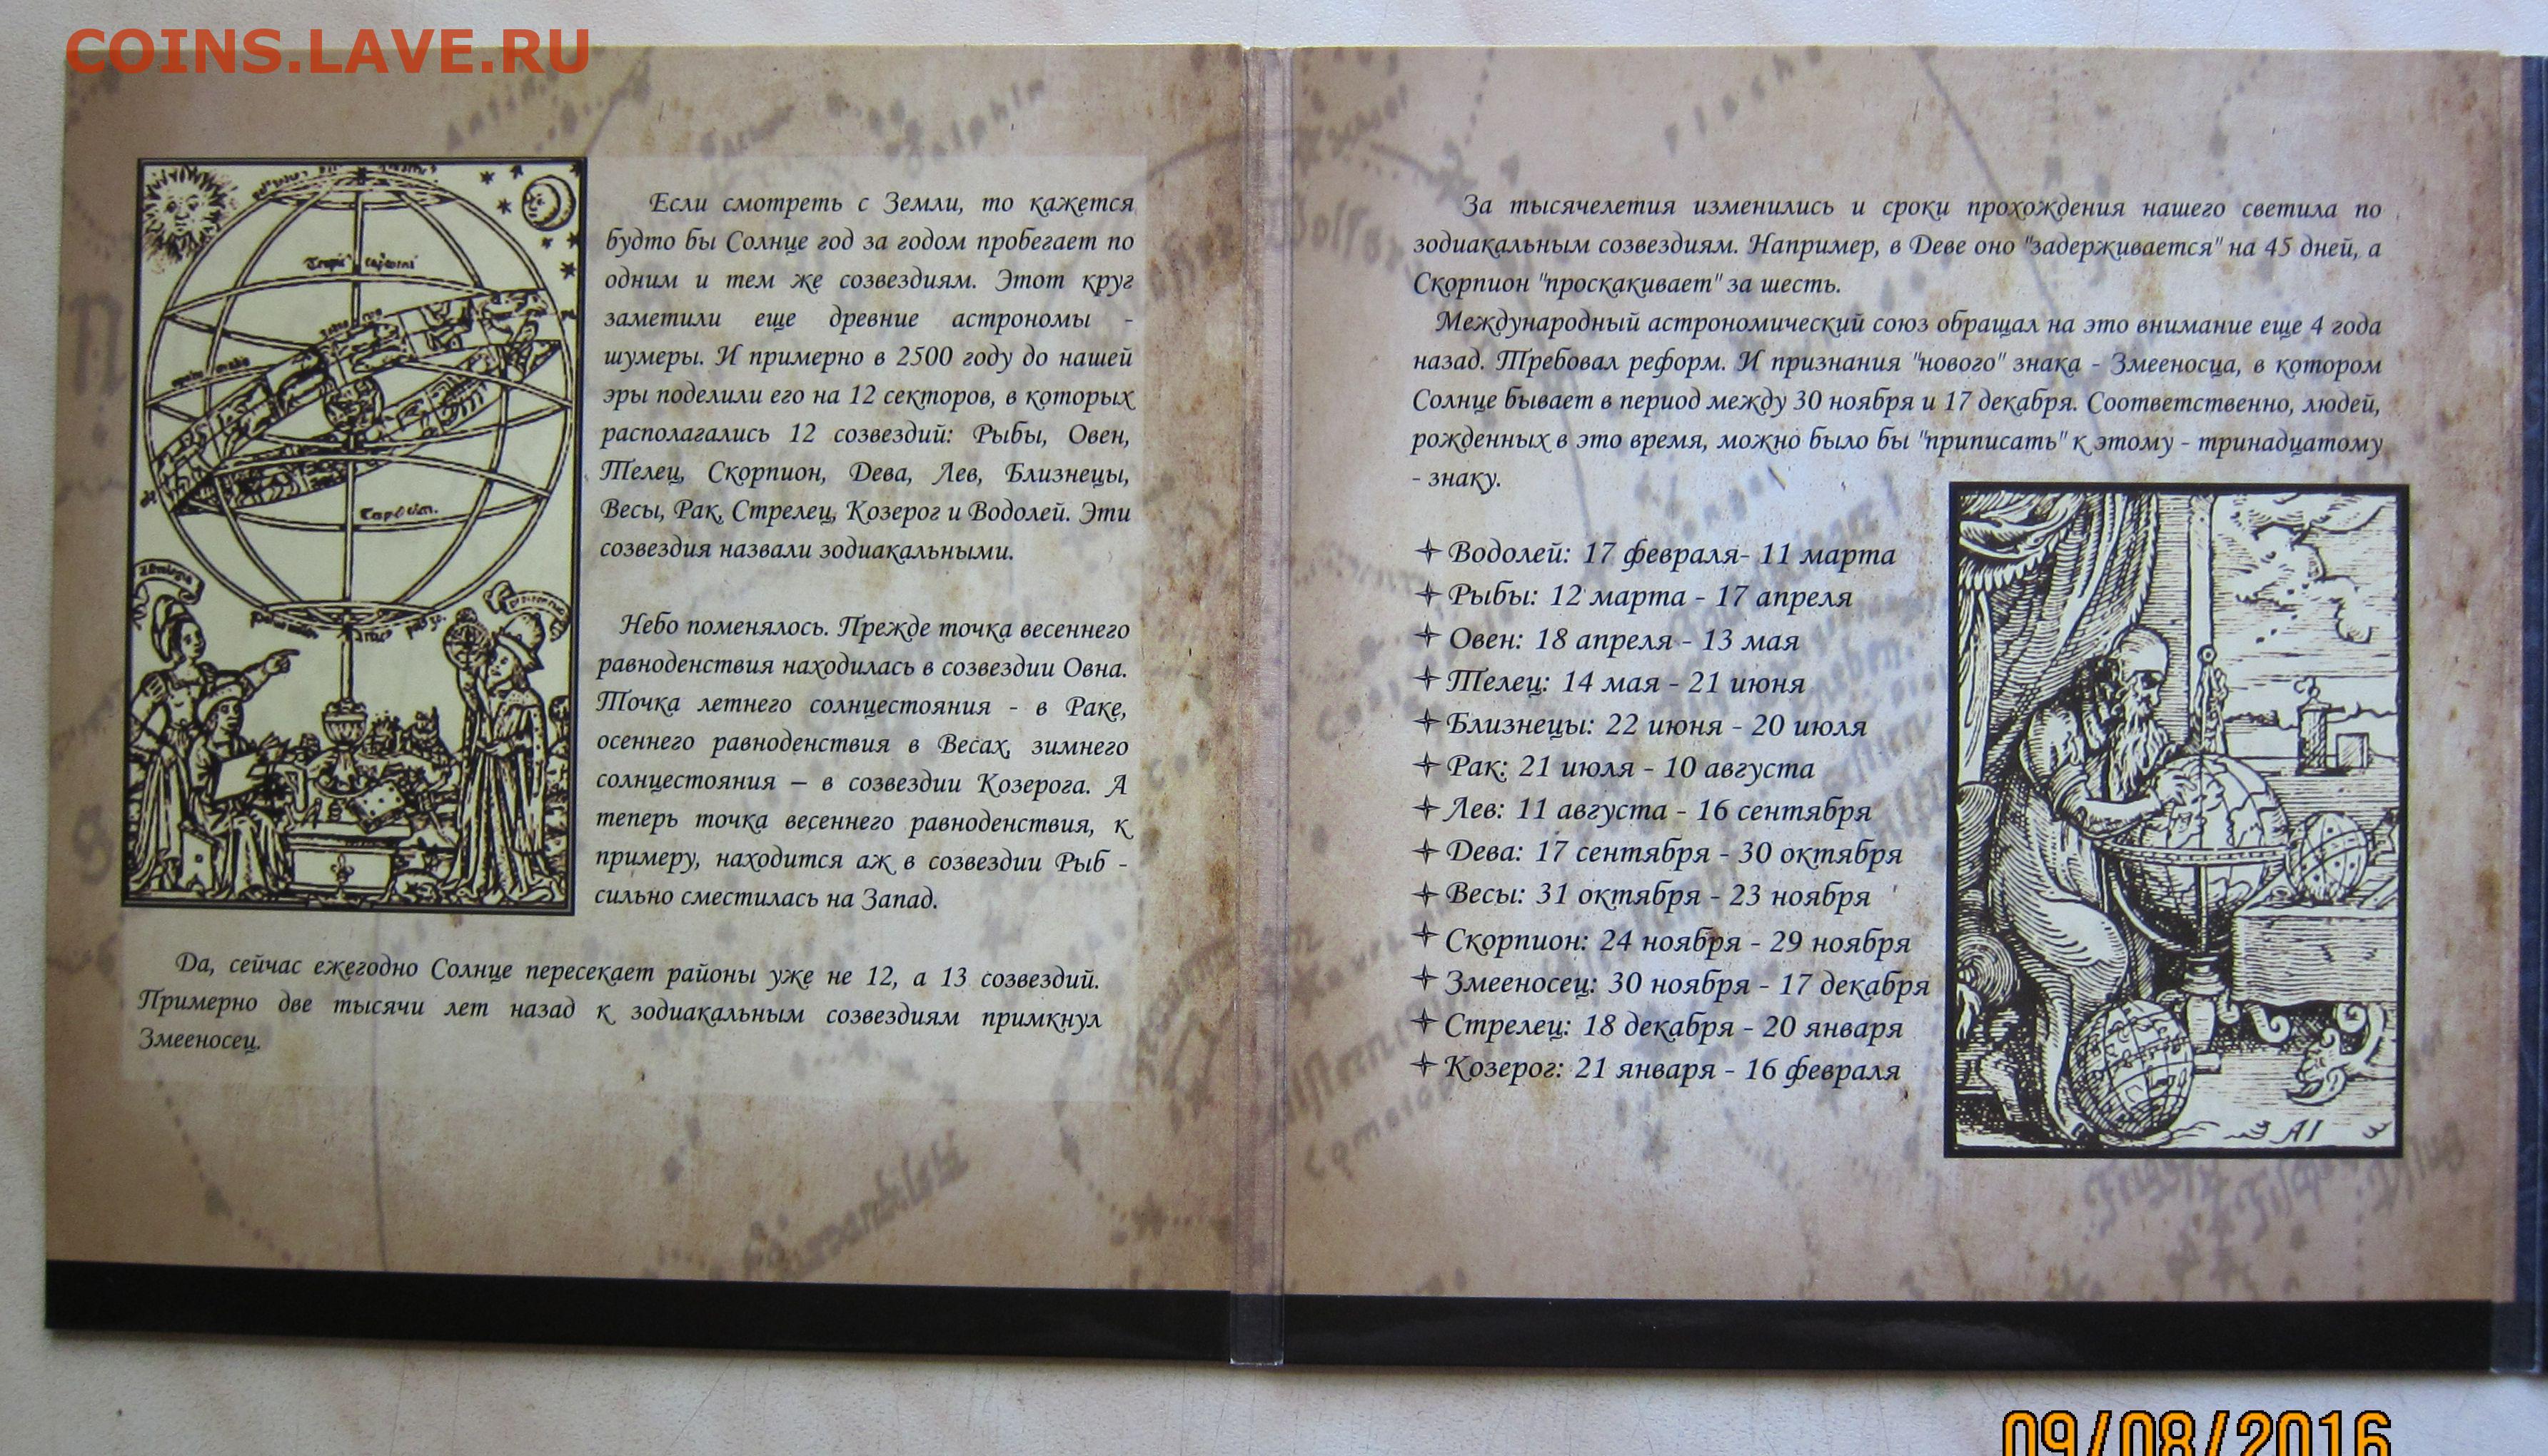 COINS.LAVE.RU
Если смотреть с Земли, то кажется
будто бы Солнце год за годом пробегает по
одним и тем же созвездиям. Этот круг
заметили еще древние астрономы -
шумеры. И примерно в 2500 году до нашей
эры поделили его на 12 секторов, в которых
располагались 12 созвездий: Рыбы, Овен,
Телец, Скорпион, Дева, Лев, Близнецы,
Весы, Рак, Стрелец, Козерог и Водолей. Эти
созвездия назвали зодиакальными.
Небо поменялось. Прежде точка весеннего
равноденствия находилась в созвездии Овна.
Точка летнего солнцестояния - в Раке,
осеннего равноденствия в Весах, зимнего
солнцестояния – в созвездии Козерога. А
теперь точка весеннего равноденствия, к
примеру, находится аж в созвездии Рыб -
сильно сместилась на Запад.
Да, сейчас ежегодно Солнце пересекает районы уже не 12, а 13 созвездий.
Примерно две тысячи лет назад к зодиакальным созвездиям примкнул
Змееносец.
За тысячелетия изменились и сроки прохождения нашего светила по
зодиакальным созвездиям. Например, в Деве оно "задерживается" на 45 дней, а
Скорпион "проскакивает" за шесть.
Международный астрономический союз обращал на это внимание еще 4 года
назад. Требовал реформ. И признания "нового" знака - Змееносца, в котором
Солнце бывает в период между 30 ноября и 17 декабря. Соответственно, людей,
рожденных в это время, можно было бы "приписать" к этому - тринадцатому
- знаку.
Водолей: 17 февраля- 11 марта
Рыбы: 12 марта - 17 апреля
Овен: 18 апреля - 13 мая
Телец: 14 мая - 21 июня
Близнецы: 22 июня - 20 июля
Рак: 21 июля - 10 августа
Лев: 11 августа - 16 сентября
Дева: 17 сентября - 30 октября
Весы: 31 октября - 23 ноября
Скорпион: 24 ноября - 29 ноября
Змееносец: 30 ноября - 17 декабря
Стрелец: 18 декабря - 20 января
Козерог: 21 января - 16 февраля
AI
09/08/2016